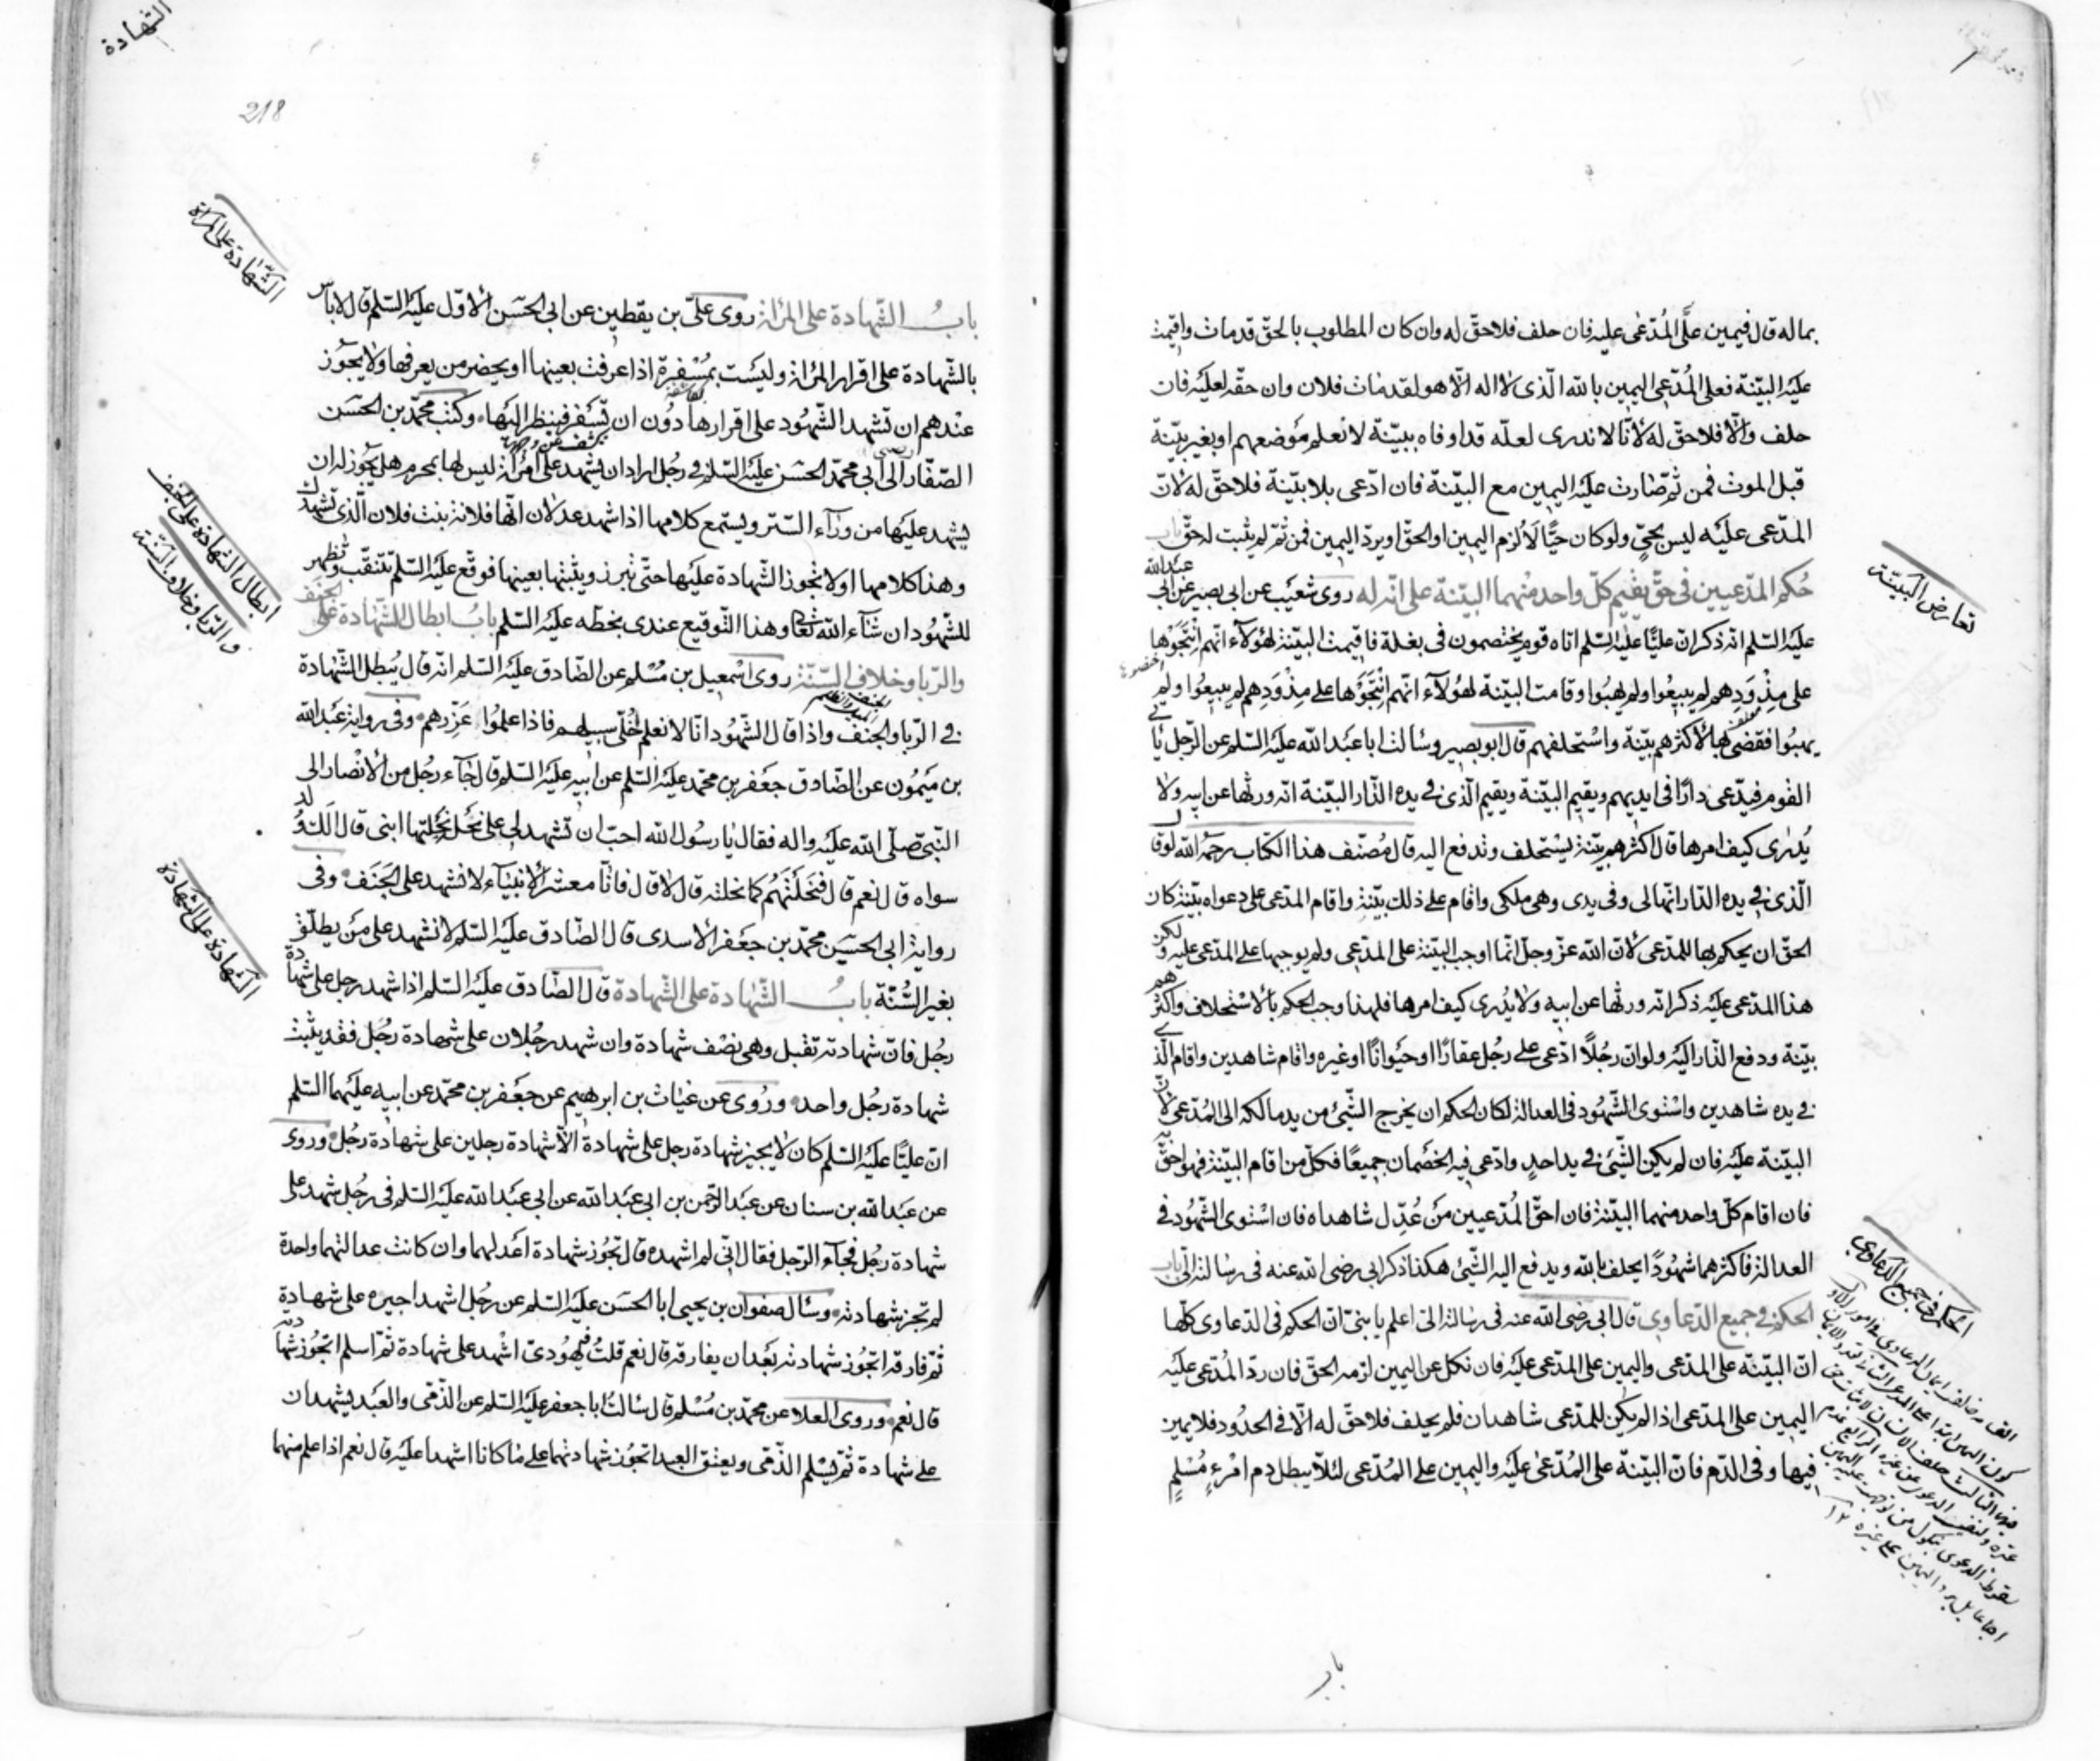 بماله قال فيمين علَى المُدّعى عليه فان حلف فلاحقّ له وان كان المطلوب بالحقّ قدمات واقيمت
عليَه البيّنة فعلى المُدّعى اليمين بالله الّذى لا اله الّا هو لقدمات فلان وان حقّه لعليَه فان
حلف والّا فلاحقّ له لأنّا لا ندرى لعلّه قد اوفاه ببيّنة لا نعلم مَوضعهم او بغير بيّنة
قبل الموت فمن ثمّ صارت عليَه اليمين مع البيّنة فان ادّعى بلا بيّنة فلاحقّ له لأنّ
المدّعى عليَه ليس بحىّ ولو كان حيًّا لَاُلزم اليمين او الحقّ او يردّ اليمين فمن ثمّ لم يثبت له حقّ باب
حُكم المدّعيين فى حقّ يقيم كلّ واحد منهما البيّنة على انّه له روى شعَيب عن ابى بصير عن ابى عبدالله
عليَه السّلم انّه ذكر انّ عليًّا عليَه السّلم اتاه قوم يختصمون فى بغلة فاقيمت البيّنة لهؤلآء انّهم انتجَوُها
على مِذْوَدِهم لم يبيعُوا ولم يهبُوا وقامت البيّنة لهؤلآء انّهم انتجَوُها على مِذْوَدِهم لم يبيعُوا ولم
يهبُوا فقضى بها لأكثرهم بيّنة واستحلفهم قال ابو بصير وسالت ابا عبَدالله عليَه السّلم عن الرّجل ياتى
القوم فيدّعى دارًا فى ايديهم ويقيم البيّنة ويقيم الّذى فى يده الدّار البيّنة انّه ورثها عن ابيه ولا
يُدرى كيف امرها قال اكثرهم بيّنة يستحلف وتدفع اليه قال مُصنّف هذا الكتاب رحمَه الله لو قال
الّذى فى يده الدّار انّها لى وفى يدى وهى ملكى واقام على ذلك بيّنة واقام المدّعى على دعواه بيّنة كان
الحقّ ان يحكم بها للمدّعى لأنّ الله عزّ وجلّ انّما اوجب البيّنة على المدّعى ولم يوجبها على المدّعى عليه ولكن
هذا المدّعى عليَه ذكر انّه ورثها عن ابيه ولا يُدرى كيف امرها فلهذا وجب الحكم بالاستحلاف واكثرهم
بيّنة ودفع الدّار اليَه ولو انّ رجُلًا ادّعى على رجُل عقارًا او حيَوانًا او غيره واقام شاهدين واقام الّذى
فى يده شاهدين واستوى الشّهُود فى العدالة لكان الحكم ان يخرج الشّىء من يد مالكه الى المُدّعى لأنّ
البيّنة عليَه فان لم يكن الشّىء فى يد احدٍ وادّعى فيه الخصْمان جميعًا فكلّ من اقام البيّنة فهو احقّ به
فان اقام كلّ واحد منهما البيّنة فان احقّ المُدّعيين مَن عُدّل شاهداه فان استوى الشّهُود فى
العدالة فاكثرهما شهُودًا يحلف بالله ويدفع اليه الشّىء هكذا ذكر ابى رضى الله عنه فى رسالته الىّ باب
الحكم فى جميع الدّعاوى قال ابى رضى الله عنه فى رسالته الىّ اعلم يا بنىّ انّ الحكم فى الدّعاوى كلّها
انّ البيّنة على المدّعى واليمين على المدّعى عليَه فان نكل عن اليمين لزمه الحقّ فان ردّ المُدّعى عليَه
اليمين على المدّعى اذا لم يكن للمدّعى شاهدان فلم يحلف فلاحقّ له الّا فى الحدُود فلا يمين
فيها وفى الدّم فانّ البيّنة على المُدّعى عليَه واليمين على المُدّعى لئلّا يبطل دم امْرءٍ مُسْلمٍ
باب
تعارض البيّنة
الحكم فى جميع الدّعاوى
الشهادة
218
باب الشّهادة على المرْاة روى علىّ بن يقطين عن ابى الحسَن الاوّل عليَه السّلم قال لا باس
بالشّهادة على اقرار المرْاة وليسَت بمُسْفرة اذا عرفت بعينها او يحضر من يعرفها ولا يجُوز
عنْدهم ان تشهد الشّهُود على اقرارها دوُن ان تسْفر فينظر اليَها وكتب محمّد بن الحسَن
الصّفّار الى ابى محمّد الحسَن عليَه السّلم فى رجُل اراد ان يشهد على امْراة ليس لها بمحرم هل يجُوز له ان
يشهد عليَها من ورآء السّتر ويستمع كلامها اذا شهد عدلان انّها فلانة بنت فلان الّذى تشهدك
وهذا كلامها او لا تجُوز الشّهادة عليَها حتّى تبرز ويثبتها بعينها فوقّع عليَه السّلم تتنقّب وتظهر
للشّهُود ان شآء الله تعالى وهذا التّوقيع عندى بخطّه عليَه السّلم بابُ ابطال الشّهادة على الجنَف
والرّبا وخلاف السّنّة روى اسْمعيل بن مُسْلم عن الصّادق عليَه السّلم انّه قال يُبطل الشّهادة
فى الرّبا والجنف واذا قال الشّهُود انّا لا نعلم خُلّى سبيلهم فاذا علمُوا عَزّرهم وفى رواية عبَدالله
بن ميَمُون عن الصّادق جعَفر بن محمّد عليَه السّلم عن ابيه عليَه السّلم قال جآء رجُل من الأنْصار الى
النّبىّ صلّى الله عليَه واله فقال يا رسُول الله احبّ ان تشهد لى على نحْل نحَلتها ابنى قال الَكَ ولد
سواه قال نعم قال فنحَلتَهُم كما نحلته قال لا قال فانّا معشر الأنبيآء لا نشهد على الجَنَف وفى
رواية ابى الحسَين محمّد بن جعَفر الأسدى قال الصّادق عليَه السّلم لا تشهد على مَن يطلّق
بغير السُّنّة بابُ الشّهادة على الشّهادة قال الصّادق عليَه السّلم اذا شهد رجل على شهادة
رجُل فانّ شهادته تقبل وهى نصْف شهادة وان شهد رجُلان على شهادة رجُل فقد يثبت
شهادة رجُل واحد وروُى عن غياث بن ابرهيم عن جعَفر بن محمّد عن ابيه عليَهما السّلم
انّ عليًّا عليَه السّلم كان لا يجيز شهادة رجل على شهادة الّا شهادة رجلين على شهادة رجُل وروى
عن عبَدالله بن سنان عن عبَدالرّحمن بن ابى عبَدالله عن ابى عبَدالله عليَه السّلم فى رجُل شهد على
شهادة رجُل فجآء الرّجل فقال انّى لم اشهده قال تجُوز شهادة اعَدلهما وان كانت عدالتهما واحدة
لم تجز شهادته وسْال صفوان بن يحيى ابا الحسَن عليَه السّلم عن رجُل اشهد اجيره على شهادة
ثمّ فارقه اتجُوز شهادته بعَد ان يفارقه قال نعم قلتُ فيهُودىّ اشْهد على شهادة ثمّ اسلم اتجُوز شهادته
قال نعم وروى العلا عن محمّد بن مُسْلم قال سْالتُ ابا جعفر عليَه السّلم عن الذّمّى والعبَد يشهدان
على شهادة ثمّ يسْلم الذّمّى ويعتق العبد اتجُوز شهادتهما على ما كانا اشهدا عليَه قال نعم اذا علم منهما
الشّهادة على المرْاة
ابطال الشّهادة على الجنف
والرّبا وخلاف السّنّة
الشّهادة على الشّهادة